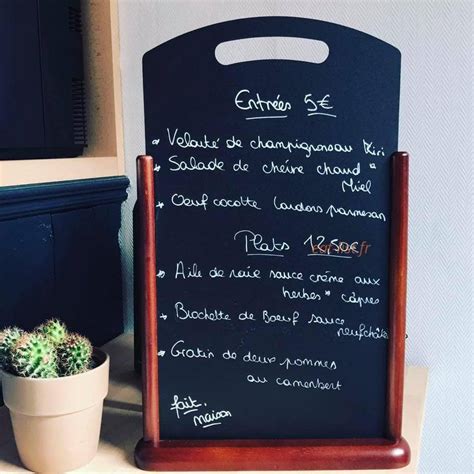 Entrées 5€
* Velouté de champignons au Kiri
* Salade de chèvre chaud
Miel
* Oeuf cocotte lardons parmesan
Plats 12,50€
* Aile de raie sauce crème aux
herbes * câpres
* Brochette de Boeuf sauce
neufchâtel
* Gratin de deux pommes
au camembert
fait
maison